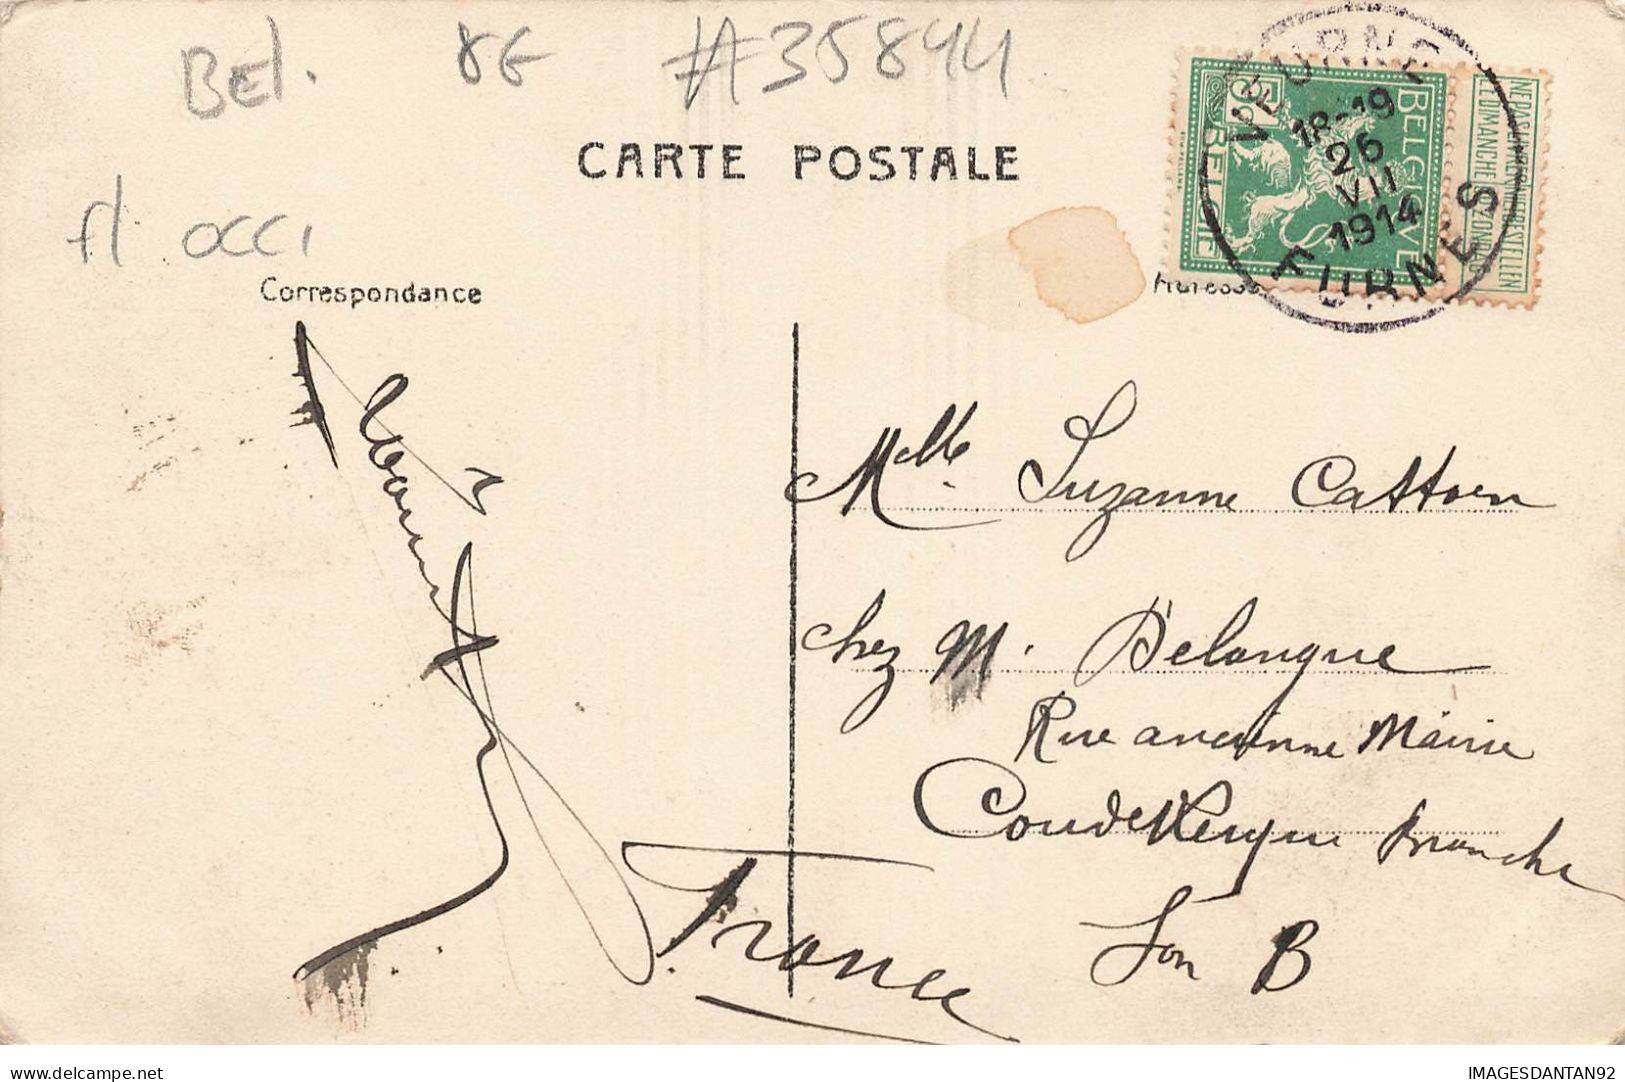 Bel. 8€ #35844
CARTE POSTALE
fl occi
Correspondance
VEURNE
18-19
26
VII
1914
FURNES
BELGIQUE
BELGIE
NE PAS LIVRER
LE DIMANCHE
NIET BESTELLEN
OP ZONDAG
Melle Suzanne Cattoen
chez M. Delangue
Rue ancienne Mairie
Coudekerque Branche
Son B
France
IMAGESDANTAN92
delcampe.net